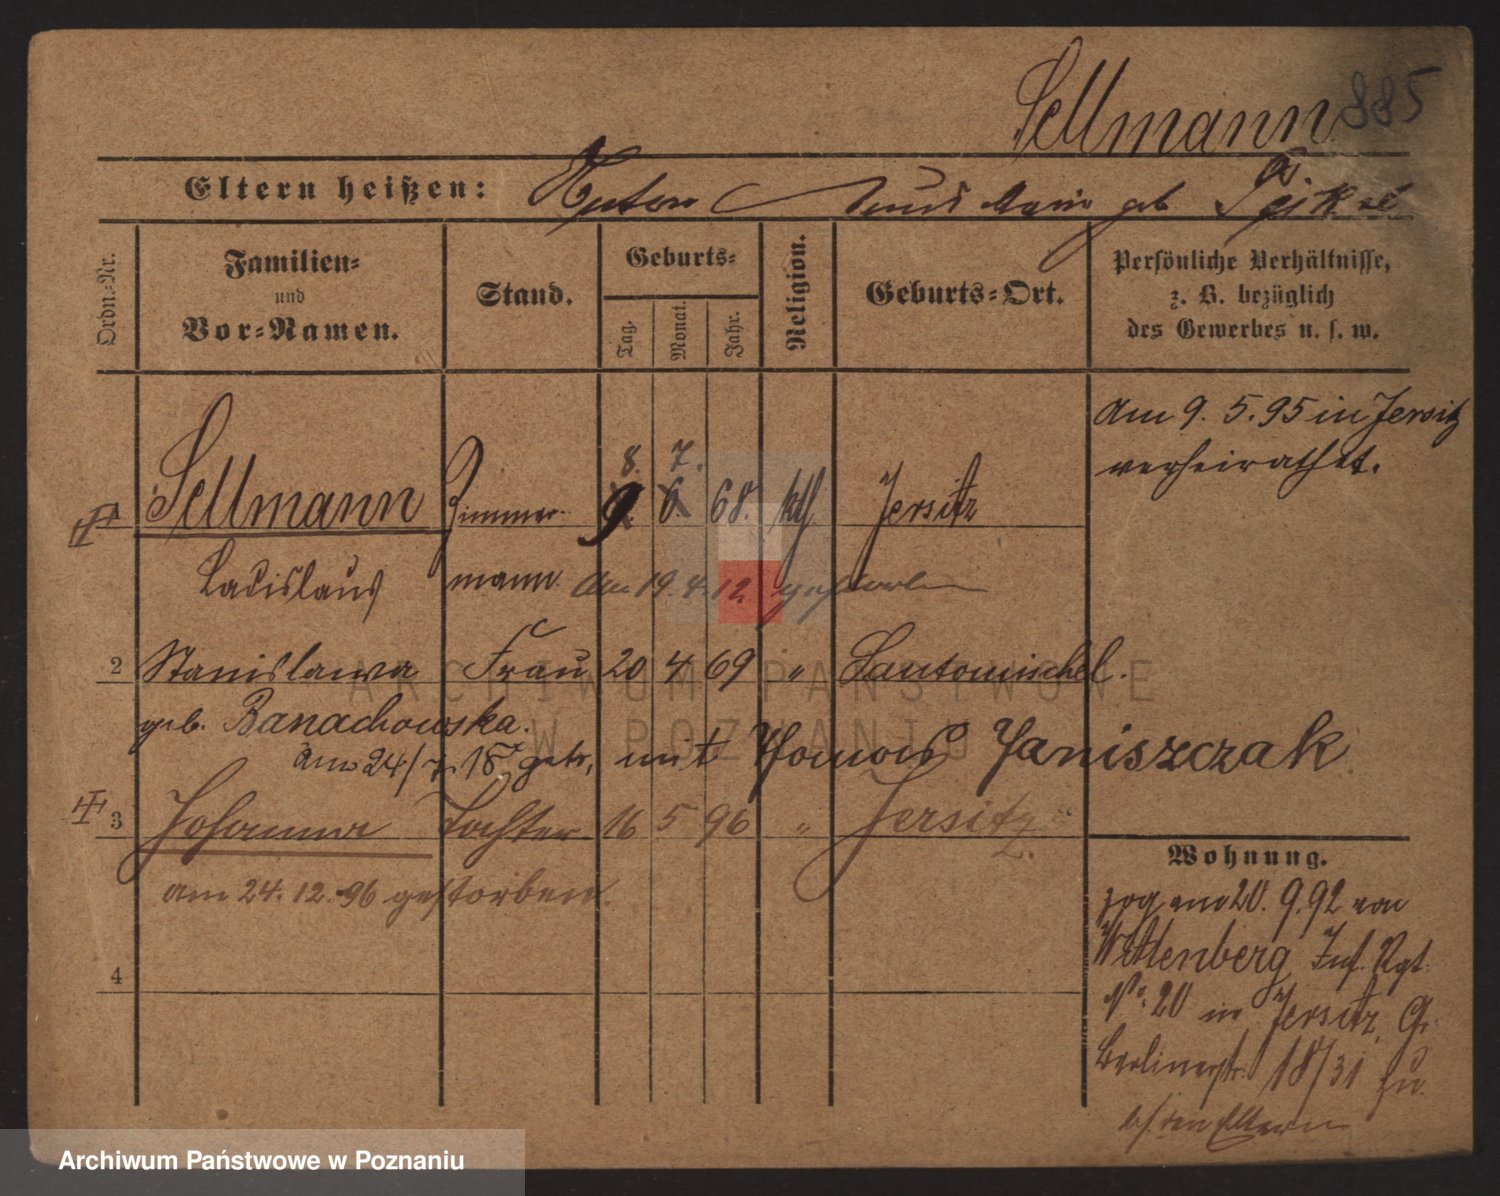 Sellmann 885
Eltern heißen: Anton und Marie geb.
Ordn.-Nr.
Familien-
und
Vor-Namen.
Stand.
Geburts-
Tag.
Monat.
Jahr.
Religion.
Geburts-Ort.
Persönliche Verhältnisse,
z. B. bezüglich
des Gewerbes u. s. w.
Am 9. 5. 95 in Jersitz
verheirathet.
8. 7.
Sellmann Zimmer- 9. 6. 68. kth. Jersitz
Ladislaus mann. Am 19. 4. 12 gestorben
2 Stanislawa Frau 20 4 69 " Santomischel.
geb. Banachowska.
am 24/7 18 getr. mit Thomas Janiszczak
3 Johanna Tochter 16 5 96 " Jersitz
am 24. 12. 96 gestorben.
4
Wohnung.
zog am 20. 9. 92 von
Wittenberg Inf. Rgt.
No. 20 in Jersitz, Gr.
Berlinerstr. 18/31 zu.
b/ den Eltern
ARCHIWUM PAŃSTWOWE
W POZNANIU
Archiwum Państwowe w Poznaniu